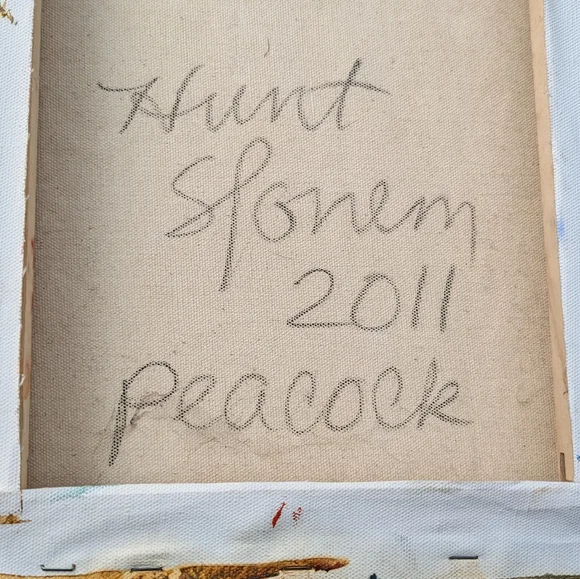 Hunt
Slonem
2011
Peacock